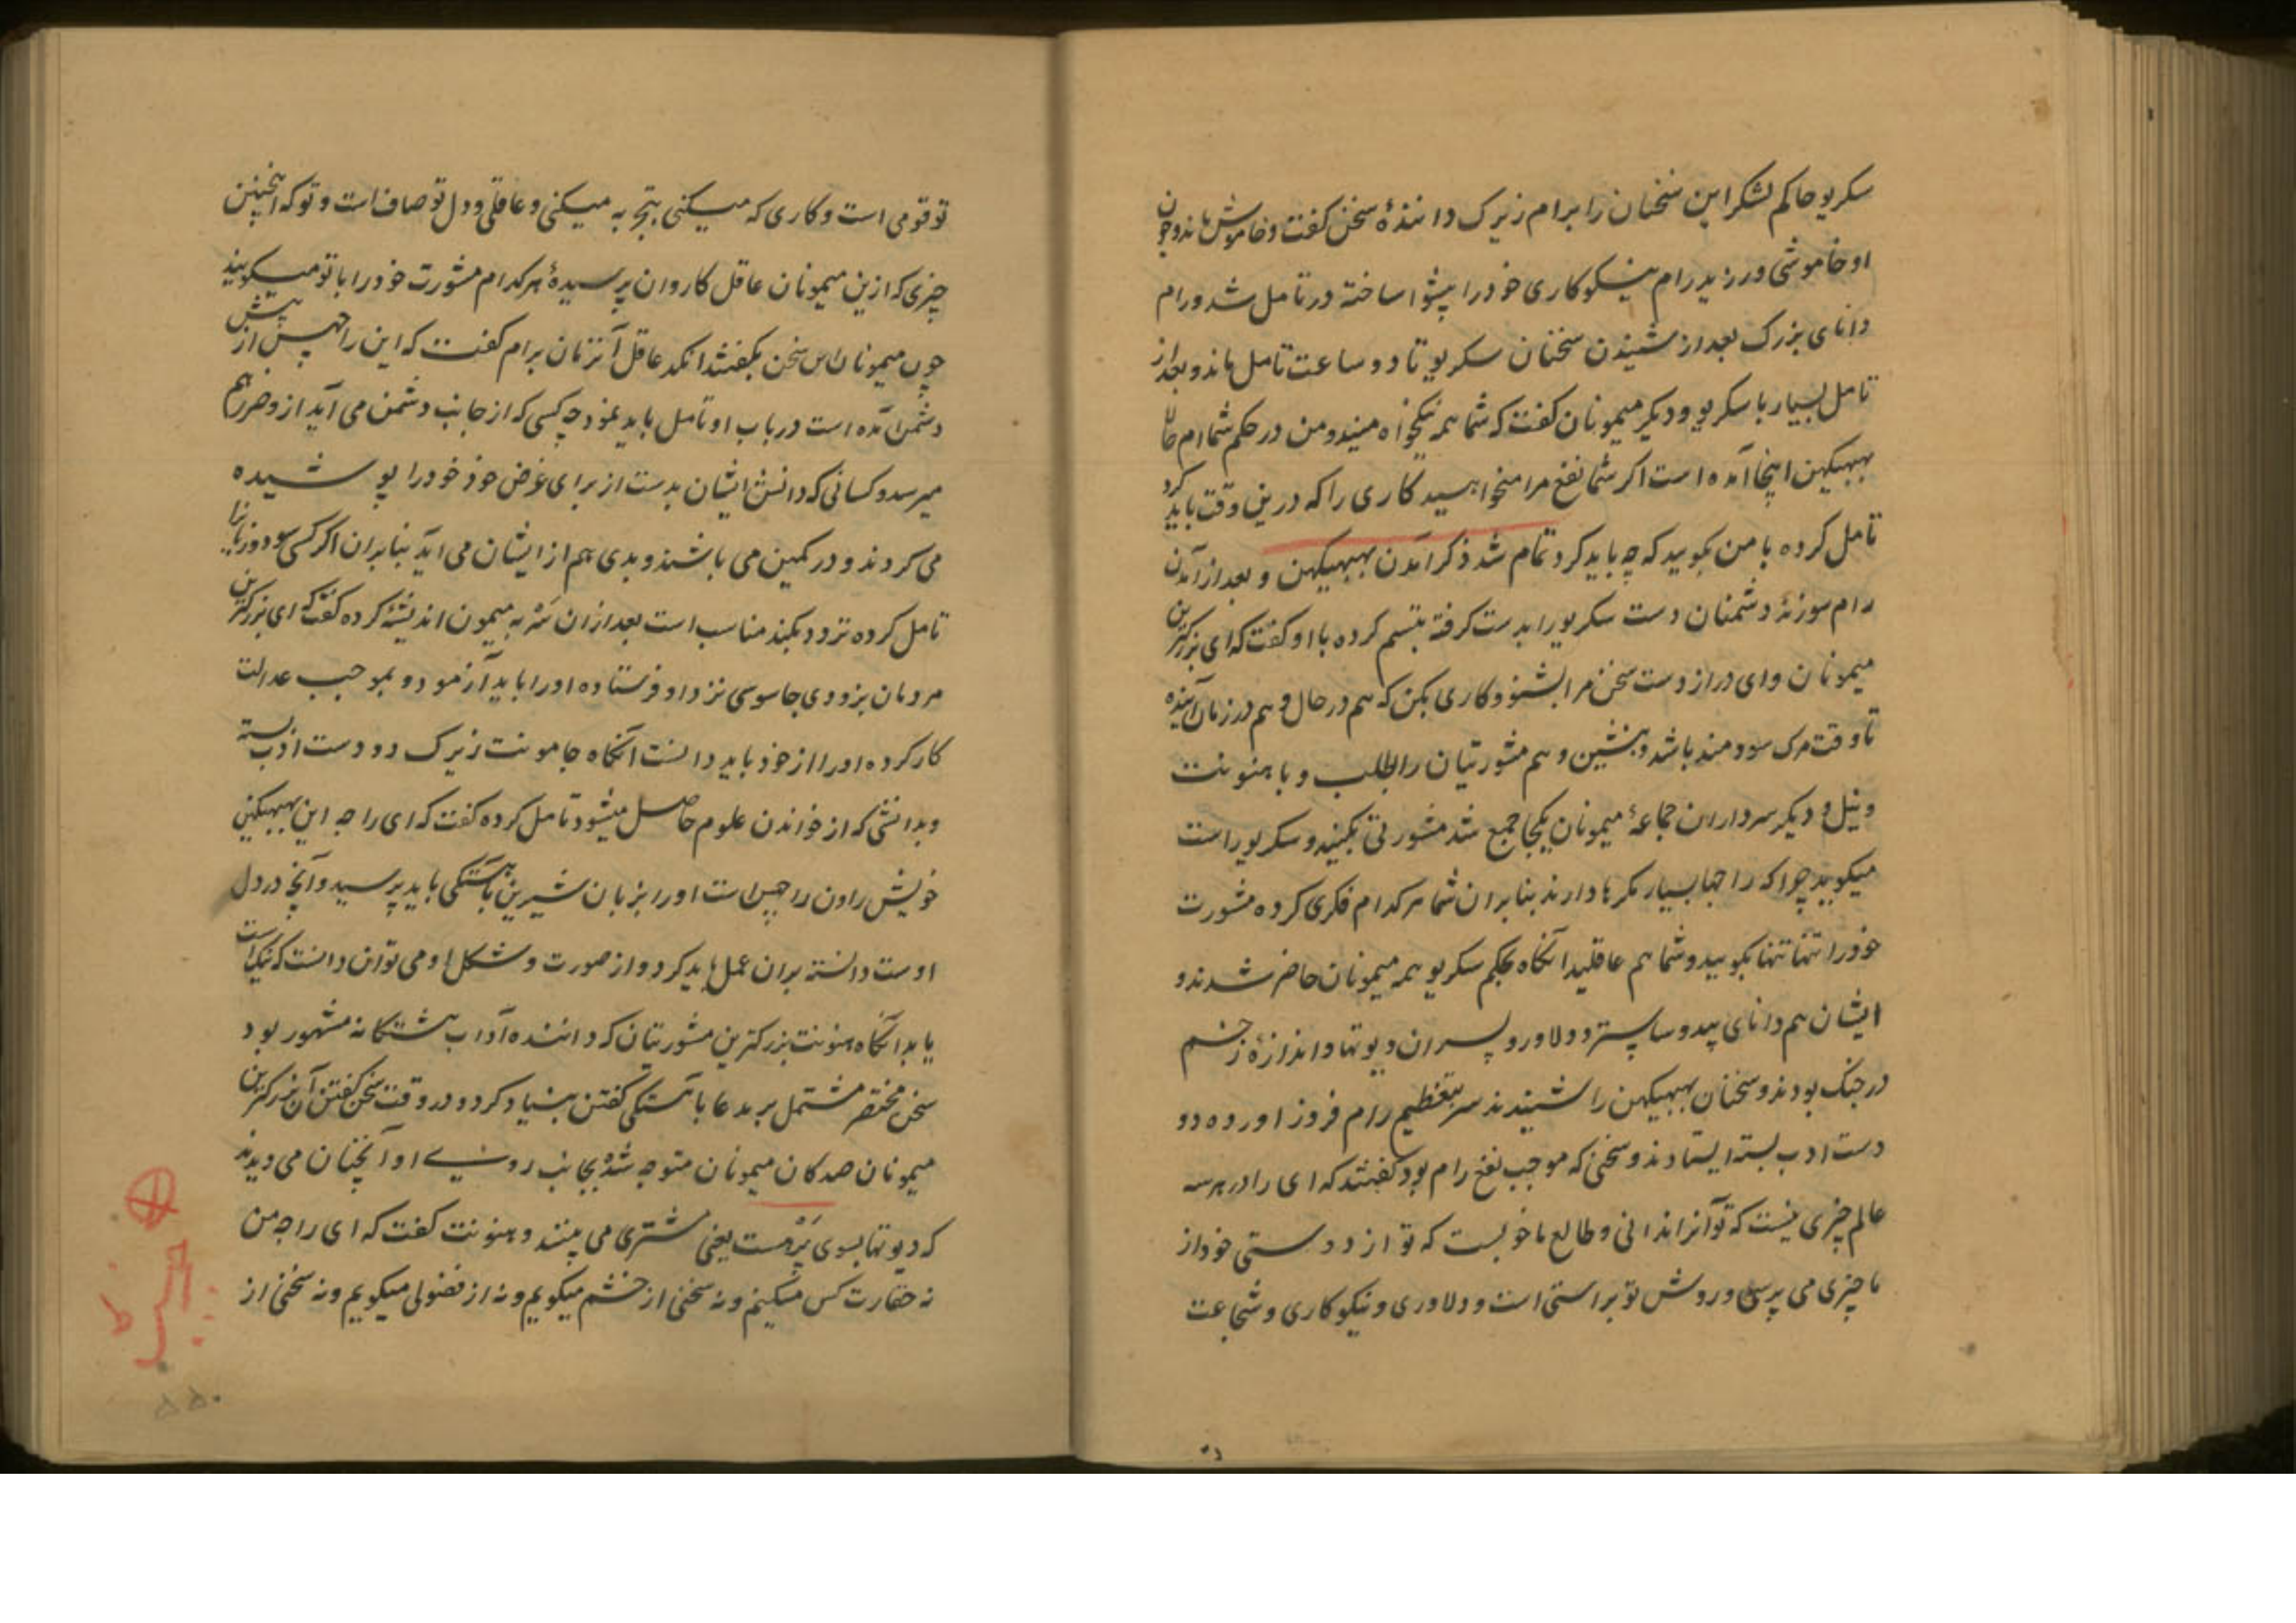 سکریو حاکم لشکر این سخنان را برام زیرک دانندهٔ سخن کفت و خاموش ماند و چون
او خاموشی ورزید رام نیکوکاری خود را پیشوا ساخته در تامل شد و رام
دانای بزرک بعد از شنیدن سخنان سکریو تا دو ساعت تامل ماند و بعد از
تامل بسیار با سکریو و دیکر میمونان کفت که شما همه نیکخواه منید و من در حکم شما ام حالا
ببهیکهن اینجا آمده است اکر شما نفع مرا میخواهید کاری را که درین وقت باید کرد
تامل کرده با من بکویید که چه باید کرد تمام شد ذکر آمدن ببهیکهن و بعد از آمدن
رام سوزندهٔ دشمنان دست سکریو را بدست کرفته تبسم کرده با او کفت که ای بزرکترین
میمونان و ای دراز دست سخن مرا بشنو و کاری بکن که هم در حال و هم در زمان آینده
تا وقت مرک سودمند باشد و بنشین و هم مشورتیان را بطلب و با هنونت
و نیل و دیکر سرداران جماعهٔ میمونان یکجا جمع شد مشورتی بکنید و سکریو راست
میکوید چرا که راجها بسیار مکرها دارند بنابران شما هر کدام فکری کرده مشورت
خود را تنها تنها بکویید و شما هم عاقلید آنکاه بحکم سکریو همه میمونان حاضر شدند و
ایشان هم دانای بید و ساستر و دلاور و پسران دیوتها و اندازهٔ زخم
در جنک بودند و سخنان ببهیکهن را شنیدند سر بتعظیم رام فروز اورده دو
دست ادب بسته ایستادند و سخنی که موجب نفع رام بود کفتند که ای را در هر سه
عالم چیزی نیست که تو آنرا ندانی و طالع ما خوبست که تو از دوستی خود از
ما چیزی می پرسی و روش تو براستی است و دلاوری و نیکوکاری و شجاعت
تو قومی است و کاری که میکنی بتجربه میکنی و عاقلی و دل تو صاف است و تو که اینچنین
چیزی که ازین میمونان عاقل کاروان پرسیدهٔ هر کدام مشورت خود را با تو میکویند
چون میمونان این سخن بکفتند انکد عاقل آنزمان برام کفت که این راچهس از پیش
دشمن آمده است در باب او تامل باید نمود چه کسی که از جانب دشمن می آید ازو ضرر هم
میرسد و کسانی که دانش ایشان بدست از برای غرض خود خود را پوشیده
می کردند و در کمین می باشند و بدی هم از ایشان می آید بنابران اکر کسی سود و زیانرا
تامل کرده تردد بکند مناسب است بعد ازان سربه میمون اندیشه کرده کفت که ای بزرکترین
مردمان بزودی جاسوسی نزد او فرستاده او را باید آزمود و بموجب عدالت
کار کرده او را از خود باید دانست آنکاه جامونت زیرک دو دست ادب بسته
و بدانشی که از خواندن علوم حاصل میشود تامل کرده کفت که ای راجه این ببهیکهن
خویش راون راچهس است او را بزبان شیرین باهستکی باید پرسید و آنچه در دل
اوست دانسته بران عمل باید کرد و از صورت و شکل او می توان دانست که نیک است
یا بد آنکاه هنونت بزرکترین مشورتیان که داننده آداب هشتکانه مشهور بود
سخن مختصر مشتمل بر مدعا باهستکی کفتن بنیاد کرد و در وقت سخن کفتن آن بزرکترین
میمونان همه کان میمونان متوجه شده بجانب روی او آنچنان می دیدند
که دیوتها بسوی برهست یعنی مشتری می بینند و هنونت کفت که ای راجه من
نه حقارت کس میکنم و نه سخنی از خشم میکویم و نه از فضولی میکویم و نه سخنی از
۵۵۰